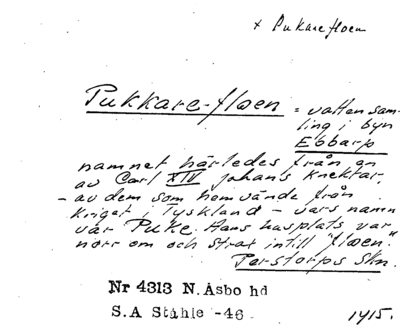 x Pukarefloen
Pukkare-floen = vattensam-
ling i byn
Ebbarp
namnet härledes från en
av Carl XIV Johans knektar,
- av dem som hemvände från
kriget i Tyskland - vars namn
var Puke. Hans husplats var
norr om och strax intill "floen."
Perstorps skn.
Nr 4313 N. Åsbo hd
S.A Ståhle -46
1915.